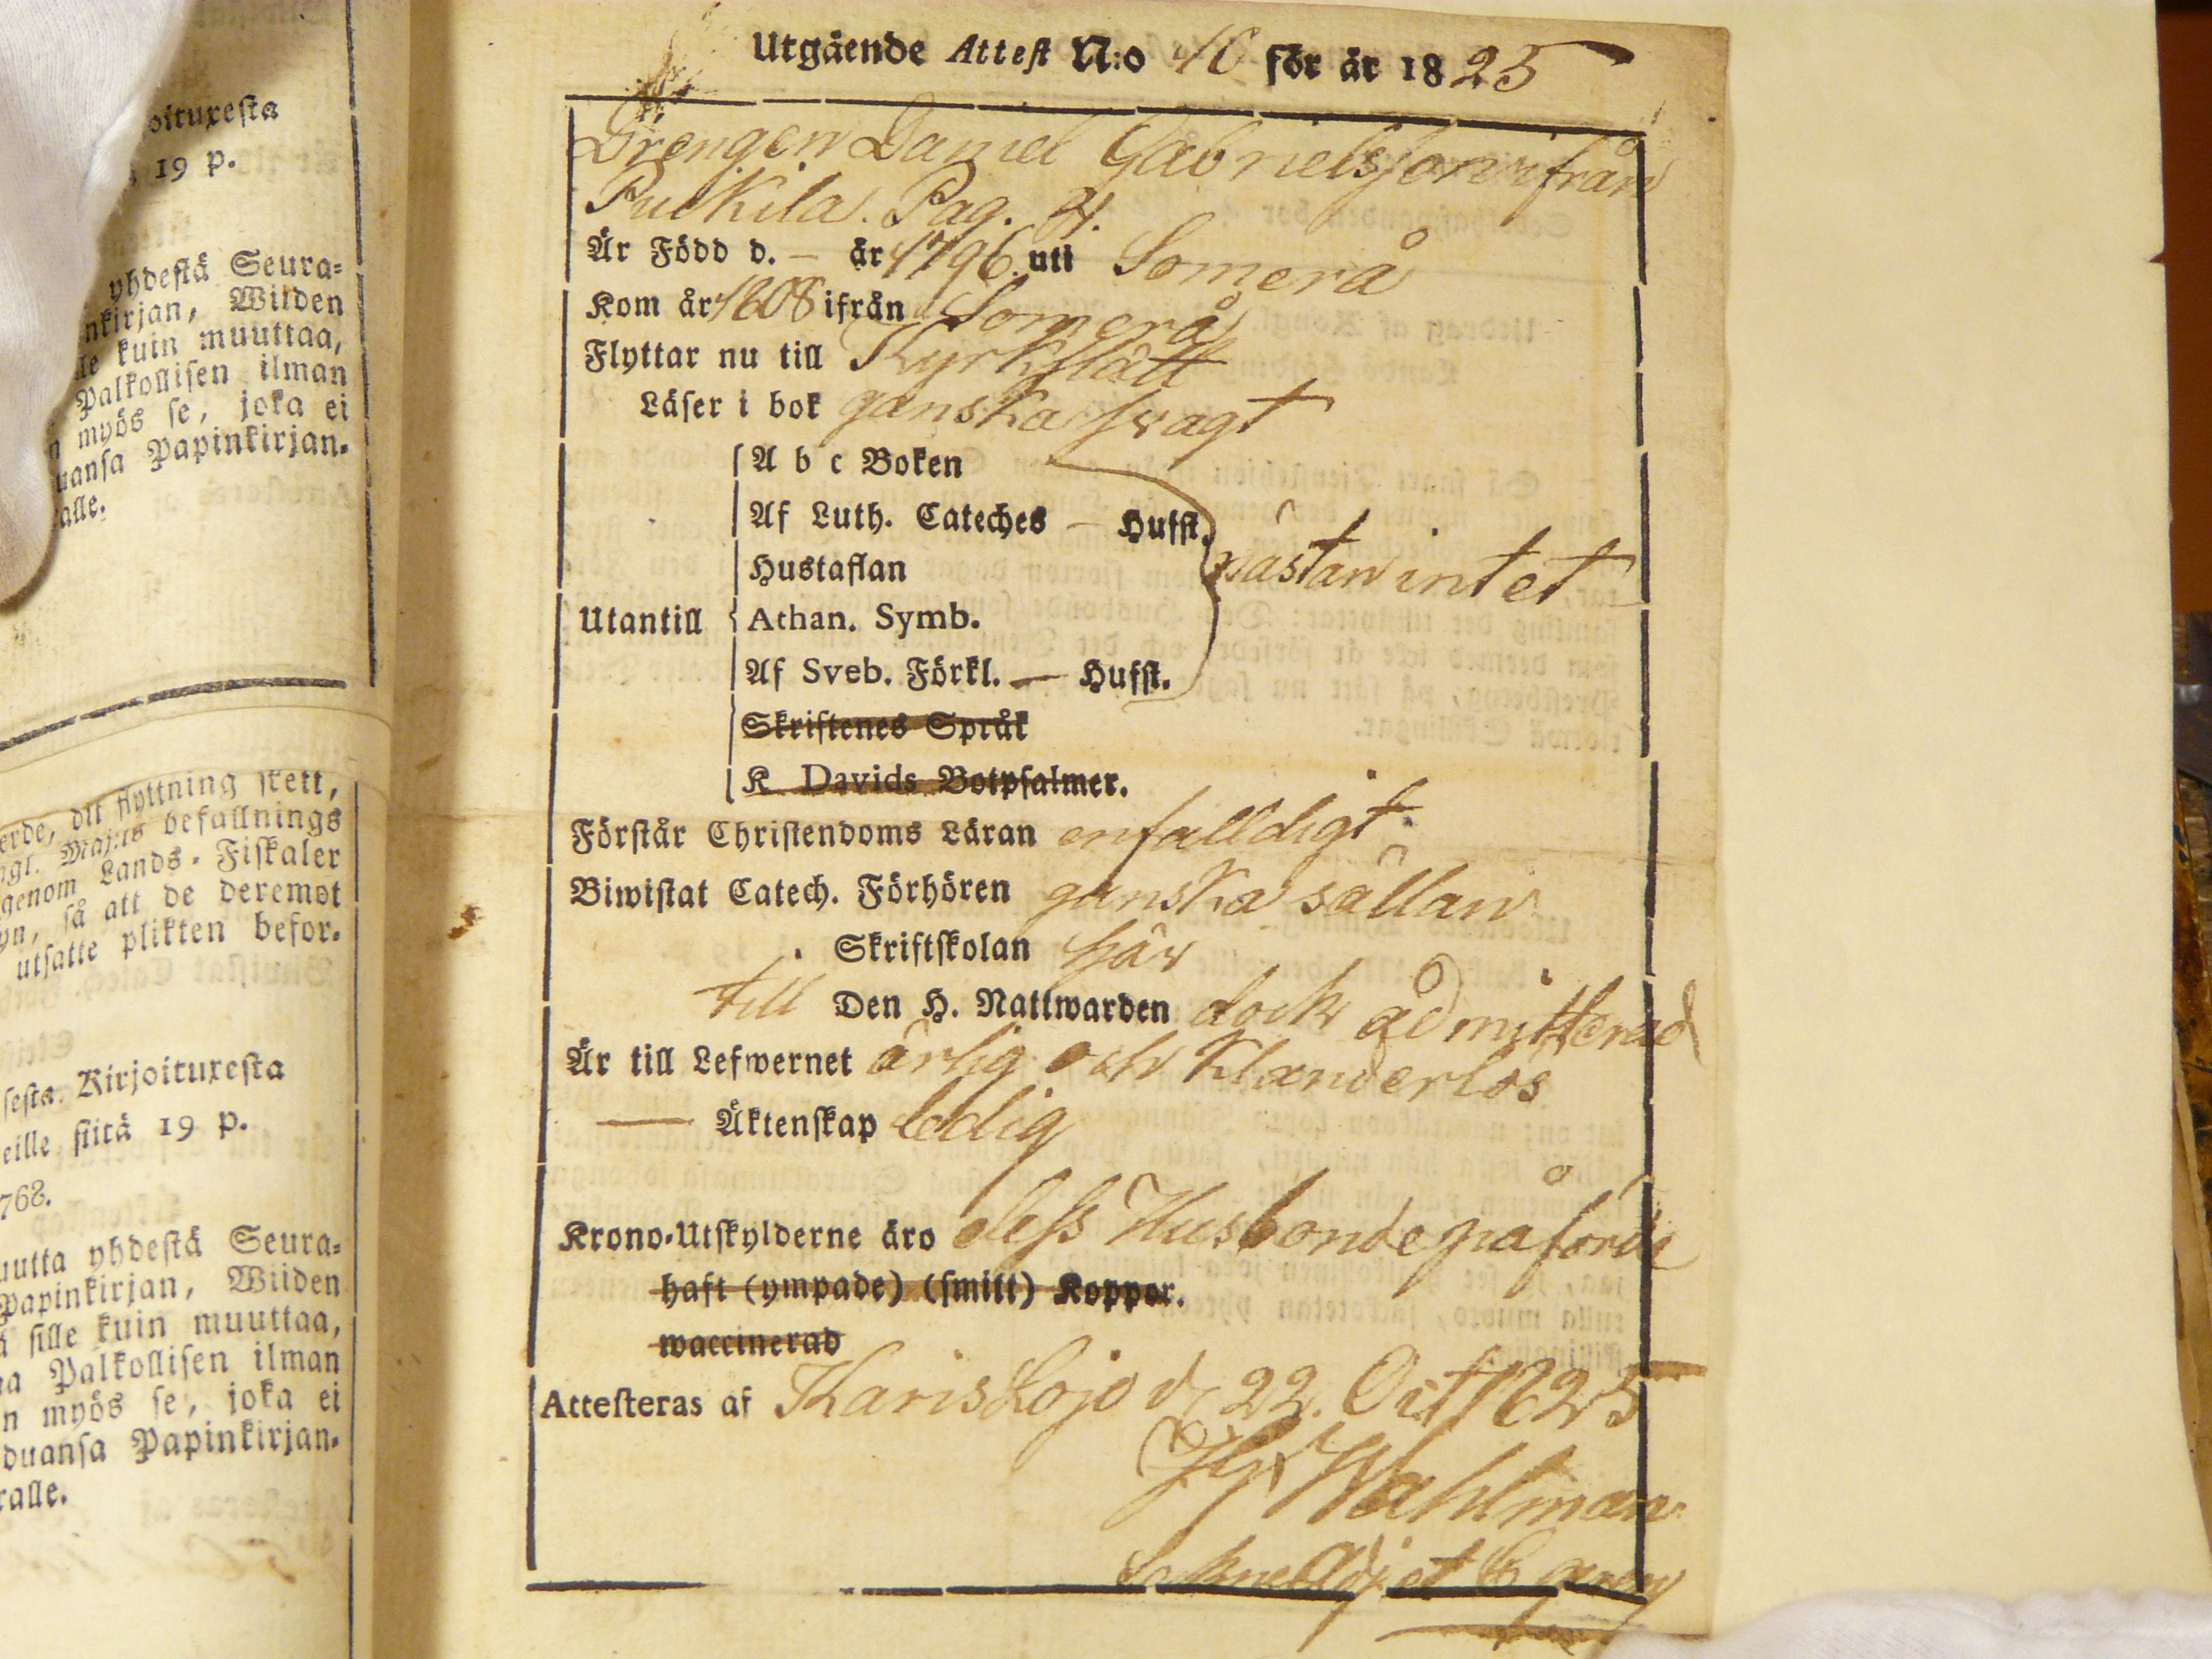 oituxesta
19 p.
yhdestä Seura=
nkirjan, Wiiden
lle kuin muuttaa,
Palkollisen ilman
n myös se, joka ei
uansa Papinkirjan.
alle.
erde, dit flyttning skett,
ngl. Maj:ts befallnings
genom Lands-Fiskaler
yn, så att de deremot
utsatte plikten befor.
sesta. Kirjoituxesta
eille siitä 19 p.
768.
uutta yhdestä Seura=
Papinkirjan, Wiiden
ä sille kuin muuttaa,
na Palkollisen ilman
n myös se, joka ei
duansa Papinkirjan.
ralle.
Utgående Attest N:o 40 för år 1825
Drengen Daniel Gabrielsson ifrån
Puckila. Pag. 31.
Är Född d. — år 1796 uti Somerå
Kom år 1808 ifrån Somerå
Flyttar nu till Kyrkslätt
Läser i bok ganska swagt
A b c Boken
Af Luth. Cateches — Hufst.
Hustaflan nästan intet
Utantill Athan. Symb.
Af Sveb. Förkl. — Hufst.
Skriftenes Språk
K Davids Botpsalmer.
Förstår Christendoms Läran enfalldigt
Biwistat Catech. Förhören ganska sällan
Skriftskolan här
till Den H. Nattwarden dock admitterad
Är till Lefwernet ärlig och Klanderlös
— Äktenskap ledig
Krono-Utskylderne äro dess Husbonde påförde
haft (ympade) (smitt) Koppor.
waccinerad
Attesteras af Karislojo d. 22. Oct 1825
Wahlman